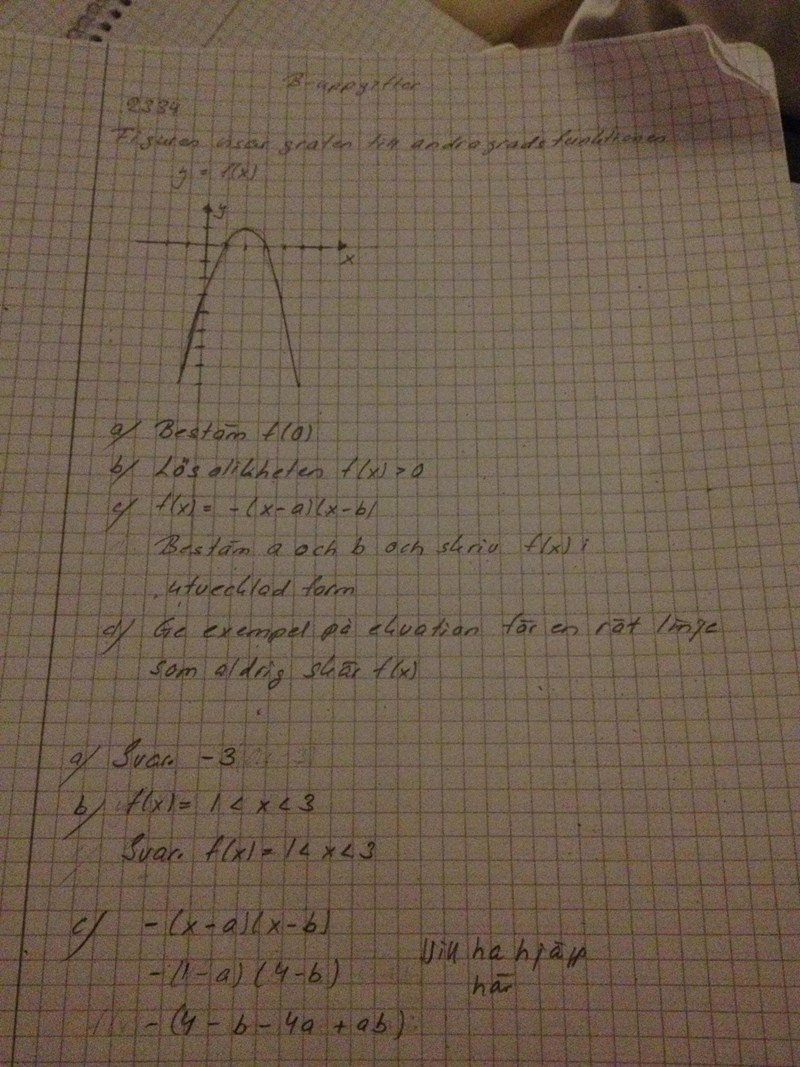 B-uppgifter
2334
Figuren visar grafen till andragradsfunktionen
y = f(x)
y
x
a) Bestäm f(0)
b) Lös olikheten f(x) > 0
c) f(x) = -(x-a)(x-b)
Bestäm a och b och skriv f(x) i
utvecklad form
d) Ge exempel på ekvation för en rät linje
som aldrig skär f(x)
a) Svar. -3
b) f(x) = 1 < x < 3
Svar. f(x) = 1 < x < 3
c) -(x-a)(x-b)
-(1-a)(4-b)
Vill ha hjälp
här
-(4-b-4a+ab)